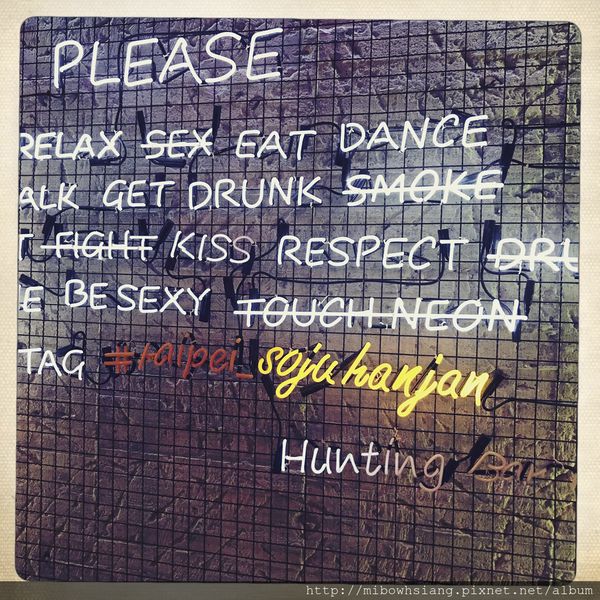 PLEASE
RELAX SEX EAT DANCE
ALK GET DRUNK SMOKE
T FIGHT KISS RESPECT DRU
E BE SEXY TOUCH NEON
TAG #taipei_sojuhanjan
Hunting Bar
http://mibowhsiang.pixnet.net/album